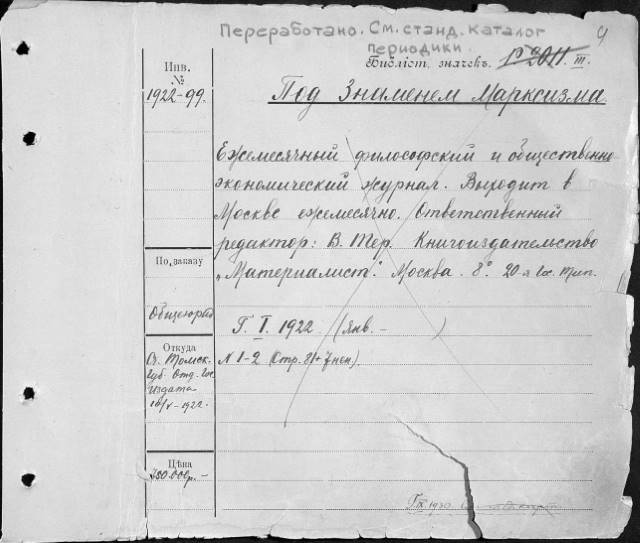 Переработано. См. станд. каталог
периодики.
4
Библіот. значекъ. III.
Инв.
№
1922-99.
Под Знаменем Марксизма
Ежемесячный философский и общественно-
экономический журнал. Выходит в
Москве ежемесячно. Ответственный
редактор: В. Тер. Книгоиздательство
„Материалист." Москва. 8° 20-я Гос. тип.
По заказу
Г. I. 1922. (Янв. - )
Откуда
Томск.
Губ. Отд. Гос
Издата
1922.
N 1-2 (Стр.
Цѣна
750.000р.-
1930.